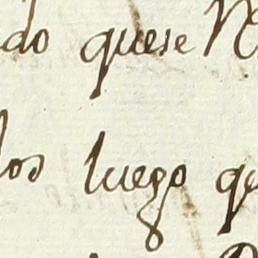 do quese
los luego qe